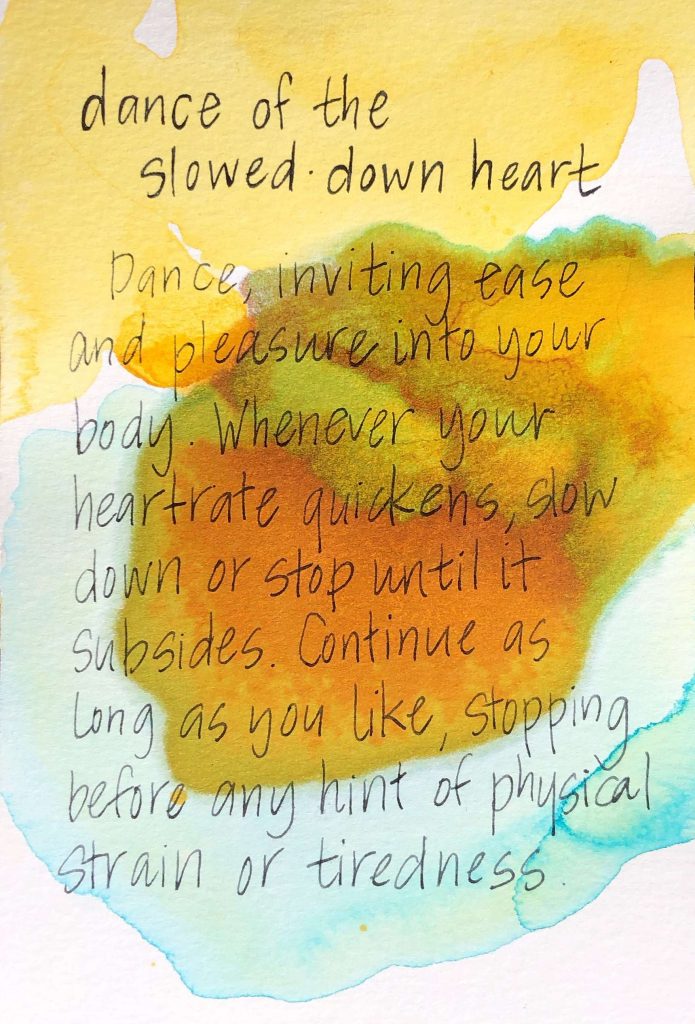 dance of the
slowed·down heart
Dance, inviting ease
and pleasure into your
body. Whenever your
heartrate quickens, slow
down or stop until it
subsides. Continue as
long as you like, stopping
before any hint of physical
strain or tiredness.